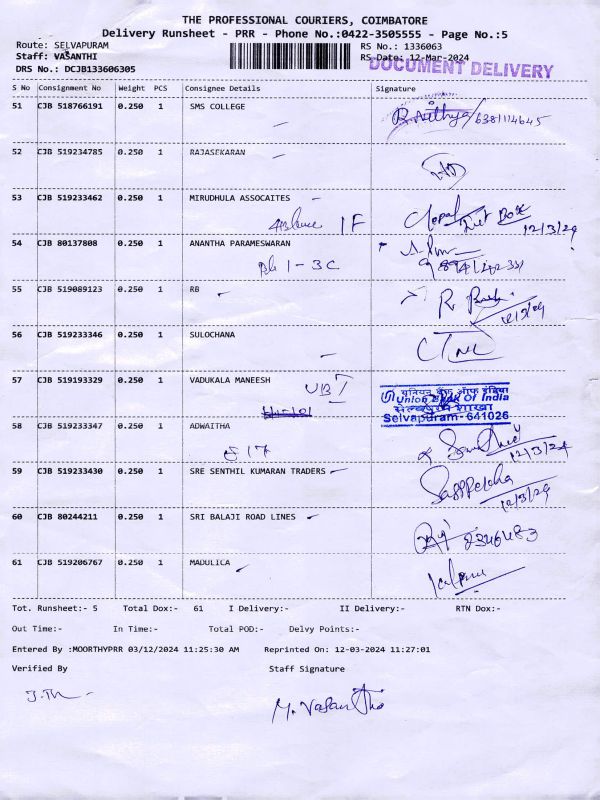 THE PROFESSIONAL COURIERS, COIMBATORE
Delivery Runsheet - PRR - Phone No.:0422-3505555 - Page No.:5
Route: SELVAPURAM
RS No.: 1336063
Staff: VASANTHI
RS-Date: 12-Mar-2024
DRS No.: DCJB133606305
DOCUMENT DELIVERY
S No Consignment No Weight PCS Consignee Details Signature
51 CJB 518766191 0.250 1 SMS COLLEGE
R. Nithya/6381114645
52 CJB 519234785 0.250 1 RAJASEKARAN
53 CJB 519233462 0.250 1 MIRUDHULA ASSOCAITES
1F
Gopal
12/3/24
54 CJB 80137808 0.250 1 ANANTHA PARAMESWARAN
1-3C
55 CJB 519089123 0.250 1 RB
R
12/3/24
56 CJB 519233346 0.250 1 SULOCHANA
57 CJB 519193329 0.250 1 VADUKALA MANEESH
UBI
यूनियन बैंक ऑफ इंडिया
Union Bank Of India
सेल्वपुरम शाखा
Selvapuram- 641026
58 CJB 519233347 0.250 1 ADWAITHA
E 17
12/3/24
59 CJB 519233430 0.250 1 SRE SENTHIL KUMARAN TRADERS
12/3/24
60 CJB 80244211 0.250 1 SRI BALAJI ROAD LINES
61 CJB 519206767 0.250 1 MADULICA
Tot. Runsheet:- 5 Total Dox:- 61 I Delivery:- II Delivery:- RTN Dox:-
Out Time:- In Time:- Total POD:- Delvy Points:-
Entered By :MOORTHYPRR 03/12/2024 11:25:30 AM Reprinted On: 12-03-2024 11:27:01
Verified By Staff Signature
M. Vasantha